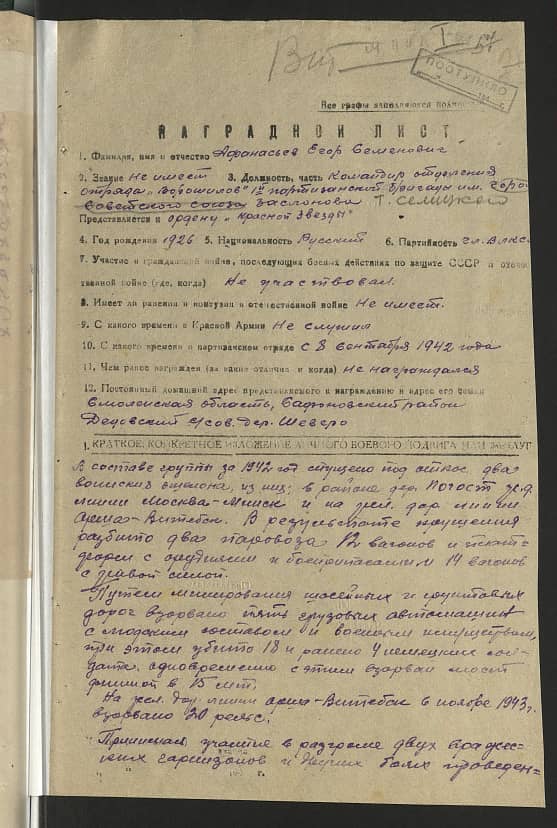 ПОСТУПИЛО
Все графы заполняются
НАГРАДНОЙ ЛИСТ
1. Фамилия, имя и отчество Афанасьев Егор Семенович
2. Звание Не имеет 3. Должность, часть Командир отделения
отряда „Ворошилов" 1й партизанской бригады им. Героя
Советского Союза Заслонова т. Селицкого
Представляется к ордену „Красной Звезды"
4. Год рождения 1926 5. Национальность Русский 6. Партийность чл. ВЛКСМ
7. Участие в гражданской войне, последующих боевых действиях по защите СССР и отече-
ственной войне (где, когда) Не участвовал
8. Имеет ли ранения и контузии в отечественной войне Не имеет.
9. С какого времени в Красной Армии Не служил
10. С какого времени в партизанском отряде с 8 сентября 1942 года
11. Чем ранее награжден (за какие отличия и когда) не награждался
12. Постоянный домашний адрес представляемого к награждению и адрес его семьи
Смоленская область, Сафоновский район
Дедовский с/сов. дер. Шеверо
I. КРАТКОЕ, КОНКРЕТНОЕ ИЗЛОЖЕНИЕ ЛИЧНОГО БОЕВОГО ПОДВИГА ИЛИ ЗАСЛУГ
В составе группы за 1942 год спущено под откос два
воинских эшелона, из них: в районе дер. Погост ж.д.
линии Москва-Минск и на жел. дор. линии
Орша-Витебск. В результате крушения
разбито два паровоза 12 вагонов и плат-
форм с орудиями и боеприпасами 14 вагонов
с живой силой.
Путем минирования шоссейных и грунтовых
дорог взорвано пять грузовых автомашин
с людским составом и военным имуществом,
при этом убито 18 и ранено 4 немецких сол-
дата. одновременно с этим взорван мост
длиной в 15 мт.
На жел. дор. линии Орша-Витебск в ноябре 1943 г.
взорвано 20 рельс.
Принимал участие в разгроме двух враже-
ских гарнизонов и других боях проведен=